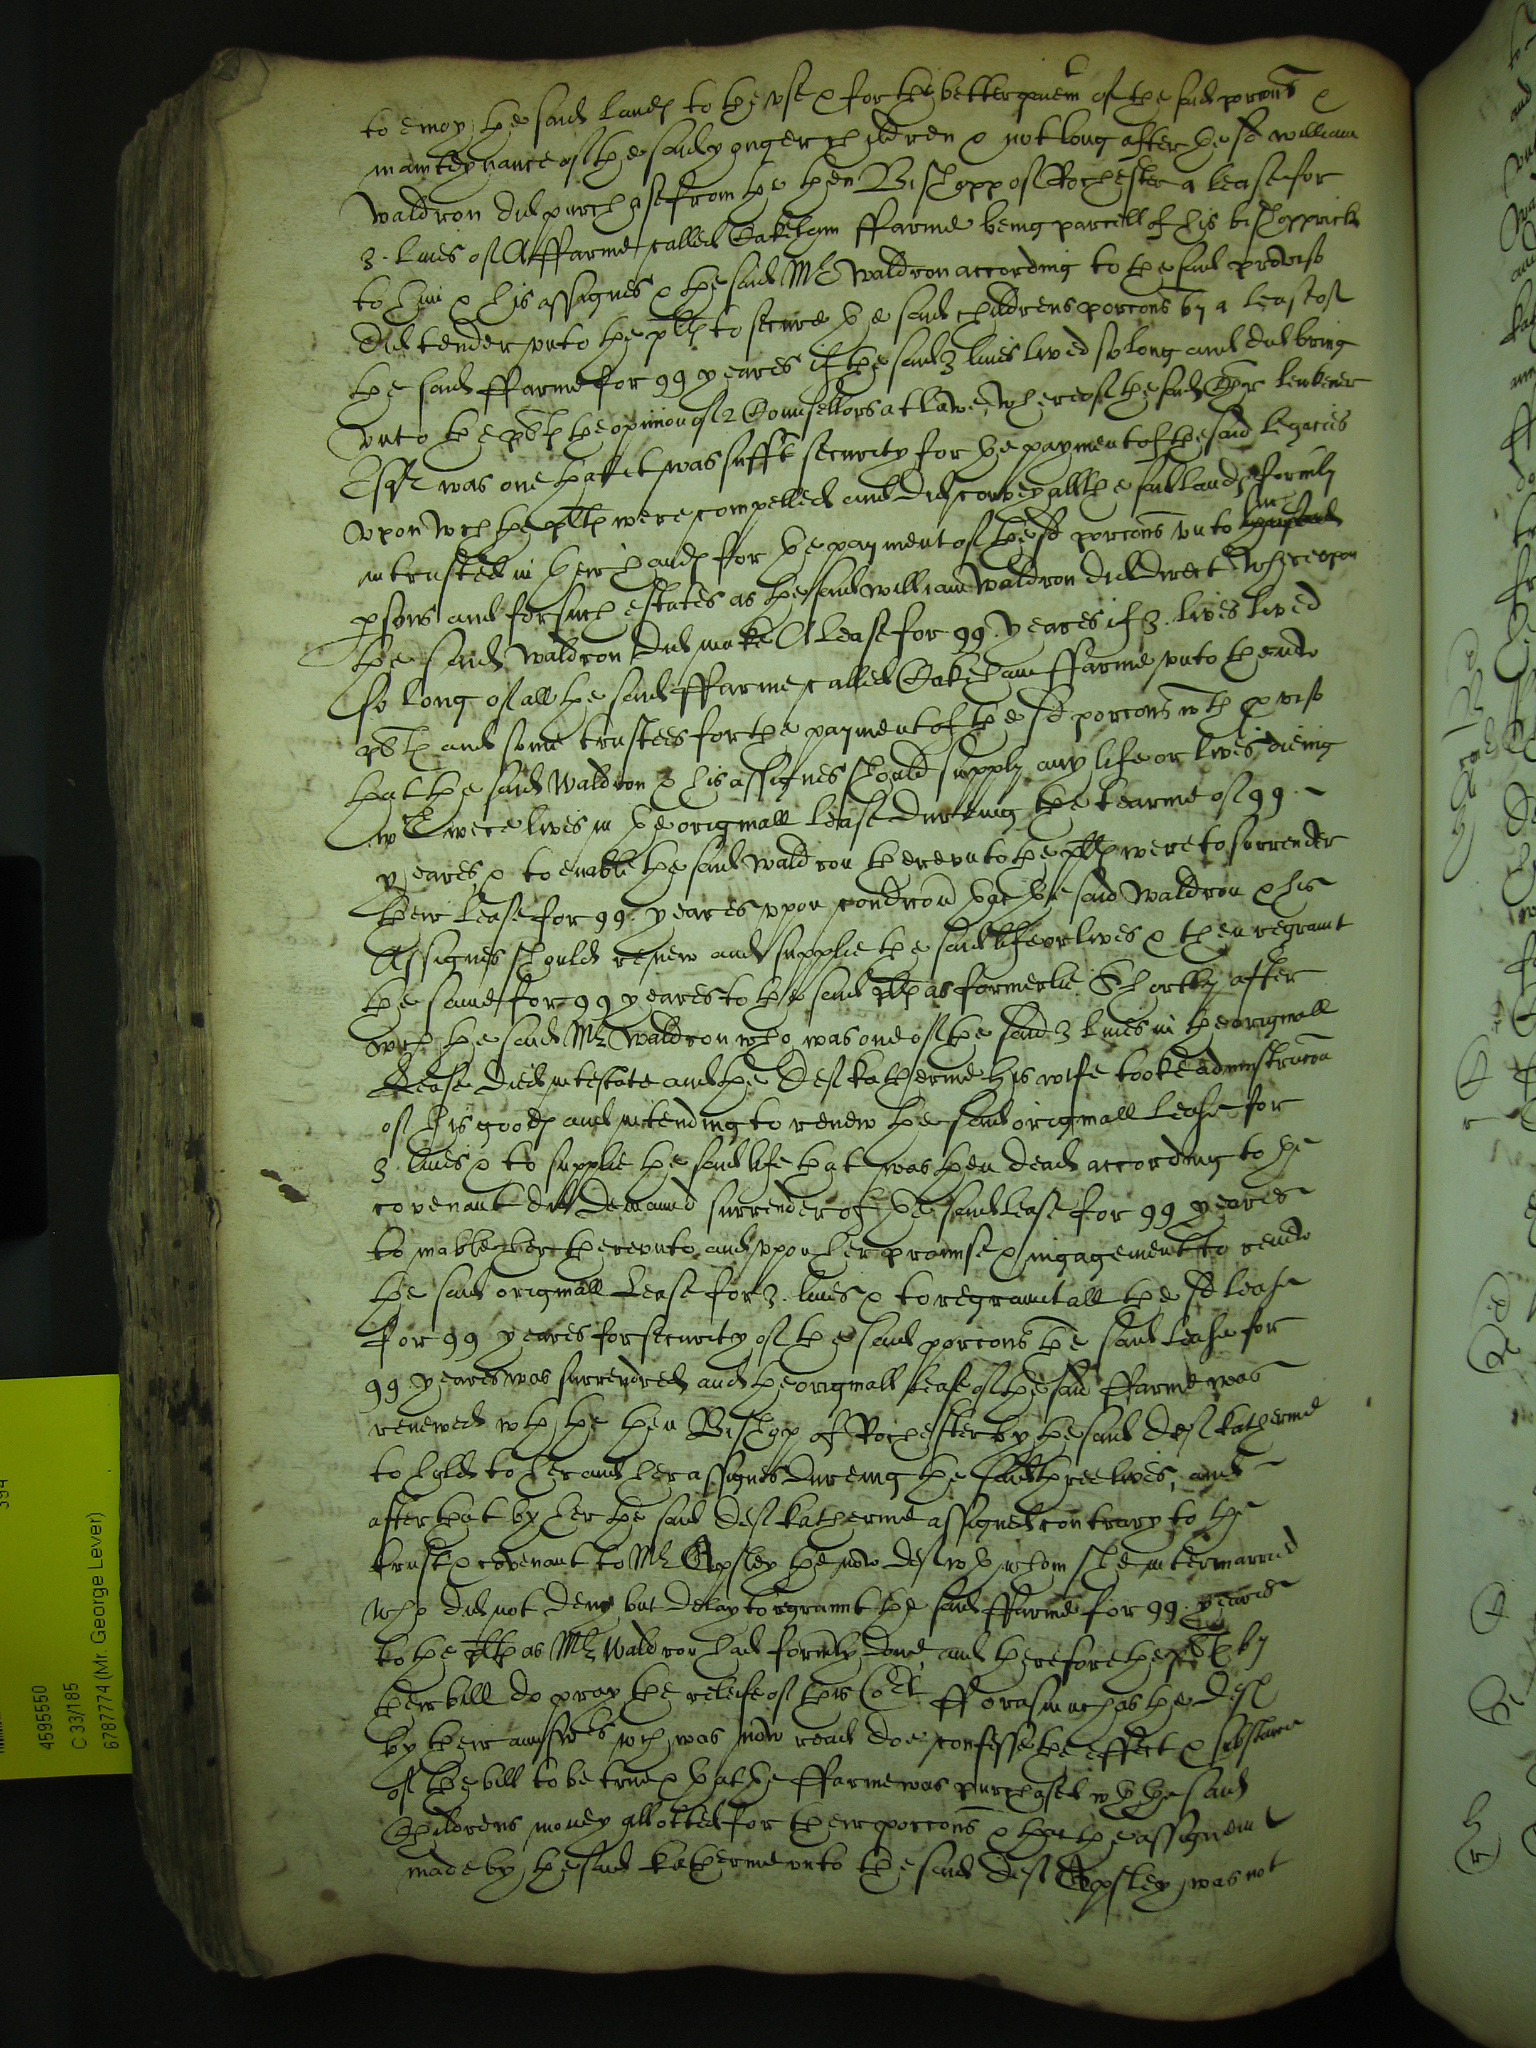 to enioy the said lands to the use & for the better paiem^t of the said porc̃ons &
maynteynance of the said yonger children & not long after the s^d william
Waldron did purchase from the then Bishopp of Rochester a lease for
3 . lives of A ffarme called Oakeham ffarme being parcell of his bishopprick
to him & his assignes & the said M^r Waldron according to the said proviso
did tender unto the pl^ts to secure the said childrens porcons by a lease of
the said ffarme for 99 yeares if the said 3 lives lived so long and did bring
unto the pl^ts the opinion of 2 Counsellors at lawe, whereof the said Chr̃ Lewkener
Esq^r was one that it was suff^t security for the payment of the said legacies
upon w^ch the pl^ts were compelled and did convey all the said lands form̃ly
intrusted in their hands for the payment of the s^d porcõns unto
psons and for such estates as the said william Waldron did direct Whereupon
the said Waldron did make A lease for 99 . yeares if 3 . lives lived
so long of all the said ffarme called Oakeham ffarme unto the now
pl^ts and some trustees for the payment of the s^d porcõns w^th proviso
that the said Waldron & his assignes should supply any life or lives dieing
w^ch were lives in the originall lease dureing the tearme of 99 . ~
yeares, & to enable the said waldron thereunto the pl^ts were to surrender
their lease for 99 . yeares upon condicõn that the said Waldron & his
Assignes should renew and supplie the said life or lives & then regrant
the same for 99 yeares to the said pl^ts as formerlie Shortly after
w^ch the said M^r Waldron who was one of the said 3 lives in the originall
Lease died intestate and the Def^t katherine his wife tooke administracõn
of his goods and intending to renew the said originall Lease for
3 . lives & to supplie the said life that was then dead according to the
covenant did demand surrender of the said lease for 99 yeares
to inable her thereunto, and upon her promise & ingagement to renew
the said originall Lease for 3 . lives & to regraunt all the s^d lease
for 99 yeares for security of the said porcõns the said Lease for
99 . yeares was surrendred and the originall lease of the said ffarme was
renewed w^th the then Bishop of Rochester by the said Def^t katherine
to hold to her and her assignes dureing the said three lives, and ~
after that by her the said Def^t katherine assigned contrary to the
trust & covenant to M^r Apsley the now def^t w^th whom she intermarried
who did not deny but delay to regraunt the said ffarme for 99 . yeares
to the pl^ts as M^r Waldron had form̃ly done, and therefore the pl^ts by
their bill do pray the releife of this Co^rt fforasmuch as the Def^ts
by their answeres w^ch was now read doe confesse the effect & substance
of the bill to be true & that the ffarme was purchased w^th the said
Childrens money allotted for their porcõns & that the assignem^t
made by the said katherine unto the said def^t Apsley was not
4595550
C 33/185
6787774 (Mr. George Lever)